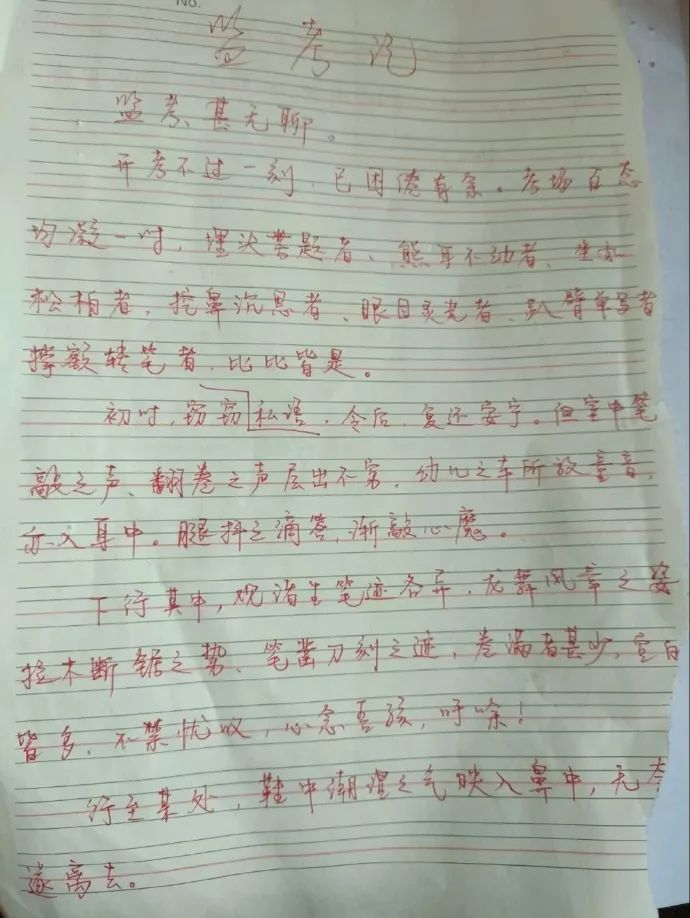 No.
监考记
监考、甚无聊。
开考不过一刻，已困倦有余。考场百态
均凝一时，埋头答题者、熊耳不动者、坐如
松柏者，挖鼻沉思者、眼目灵光者、趴臂单写者
撑额转笔者，比比皆是。
初时，窃窃私语，令后，复还安宁。但室中笔
敲之声、翻卷之声层出不穷，幼儿之车所放童音，
亦入耳中。腿抖之滴答，渐敲心魔。
下行其中，观诸生笔迹各异，龙舞风章之姿
拉木断锯之势、笔凿刀刻之迹，卷满者甚少，空白
皆多，不禁忧叹，心急吾孩，呼唏！
行至某处，鞋中潮湿之气映入鼻中，无奈
遂离去。